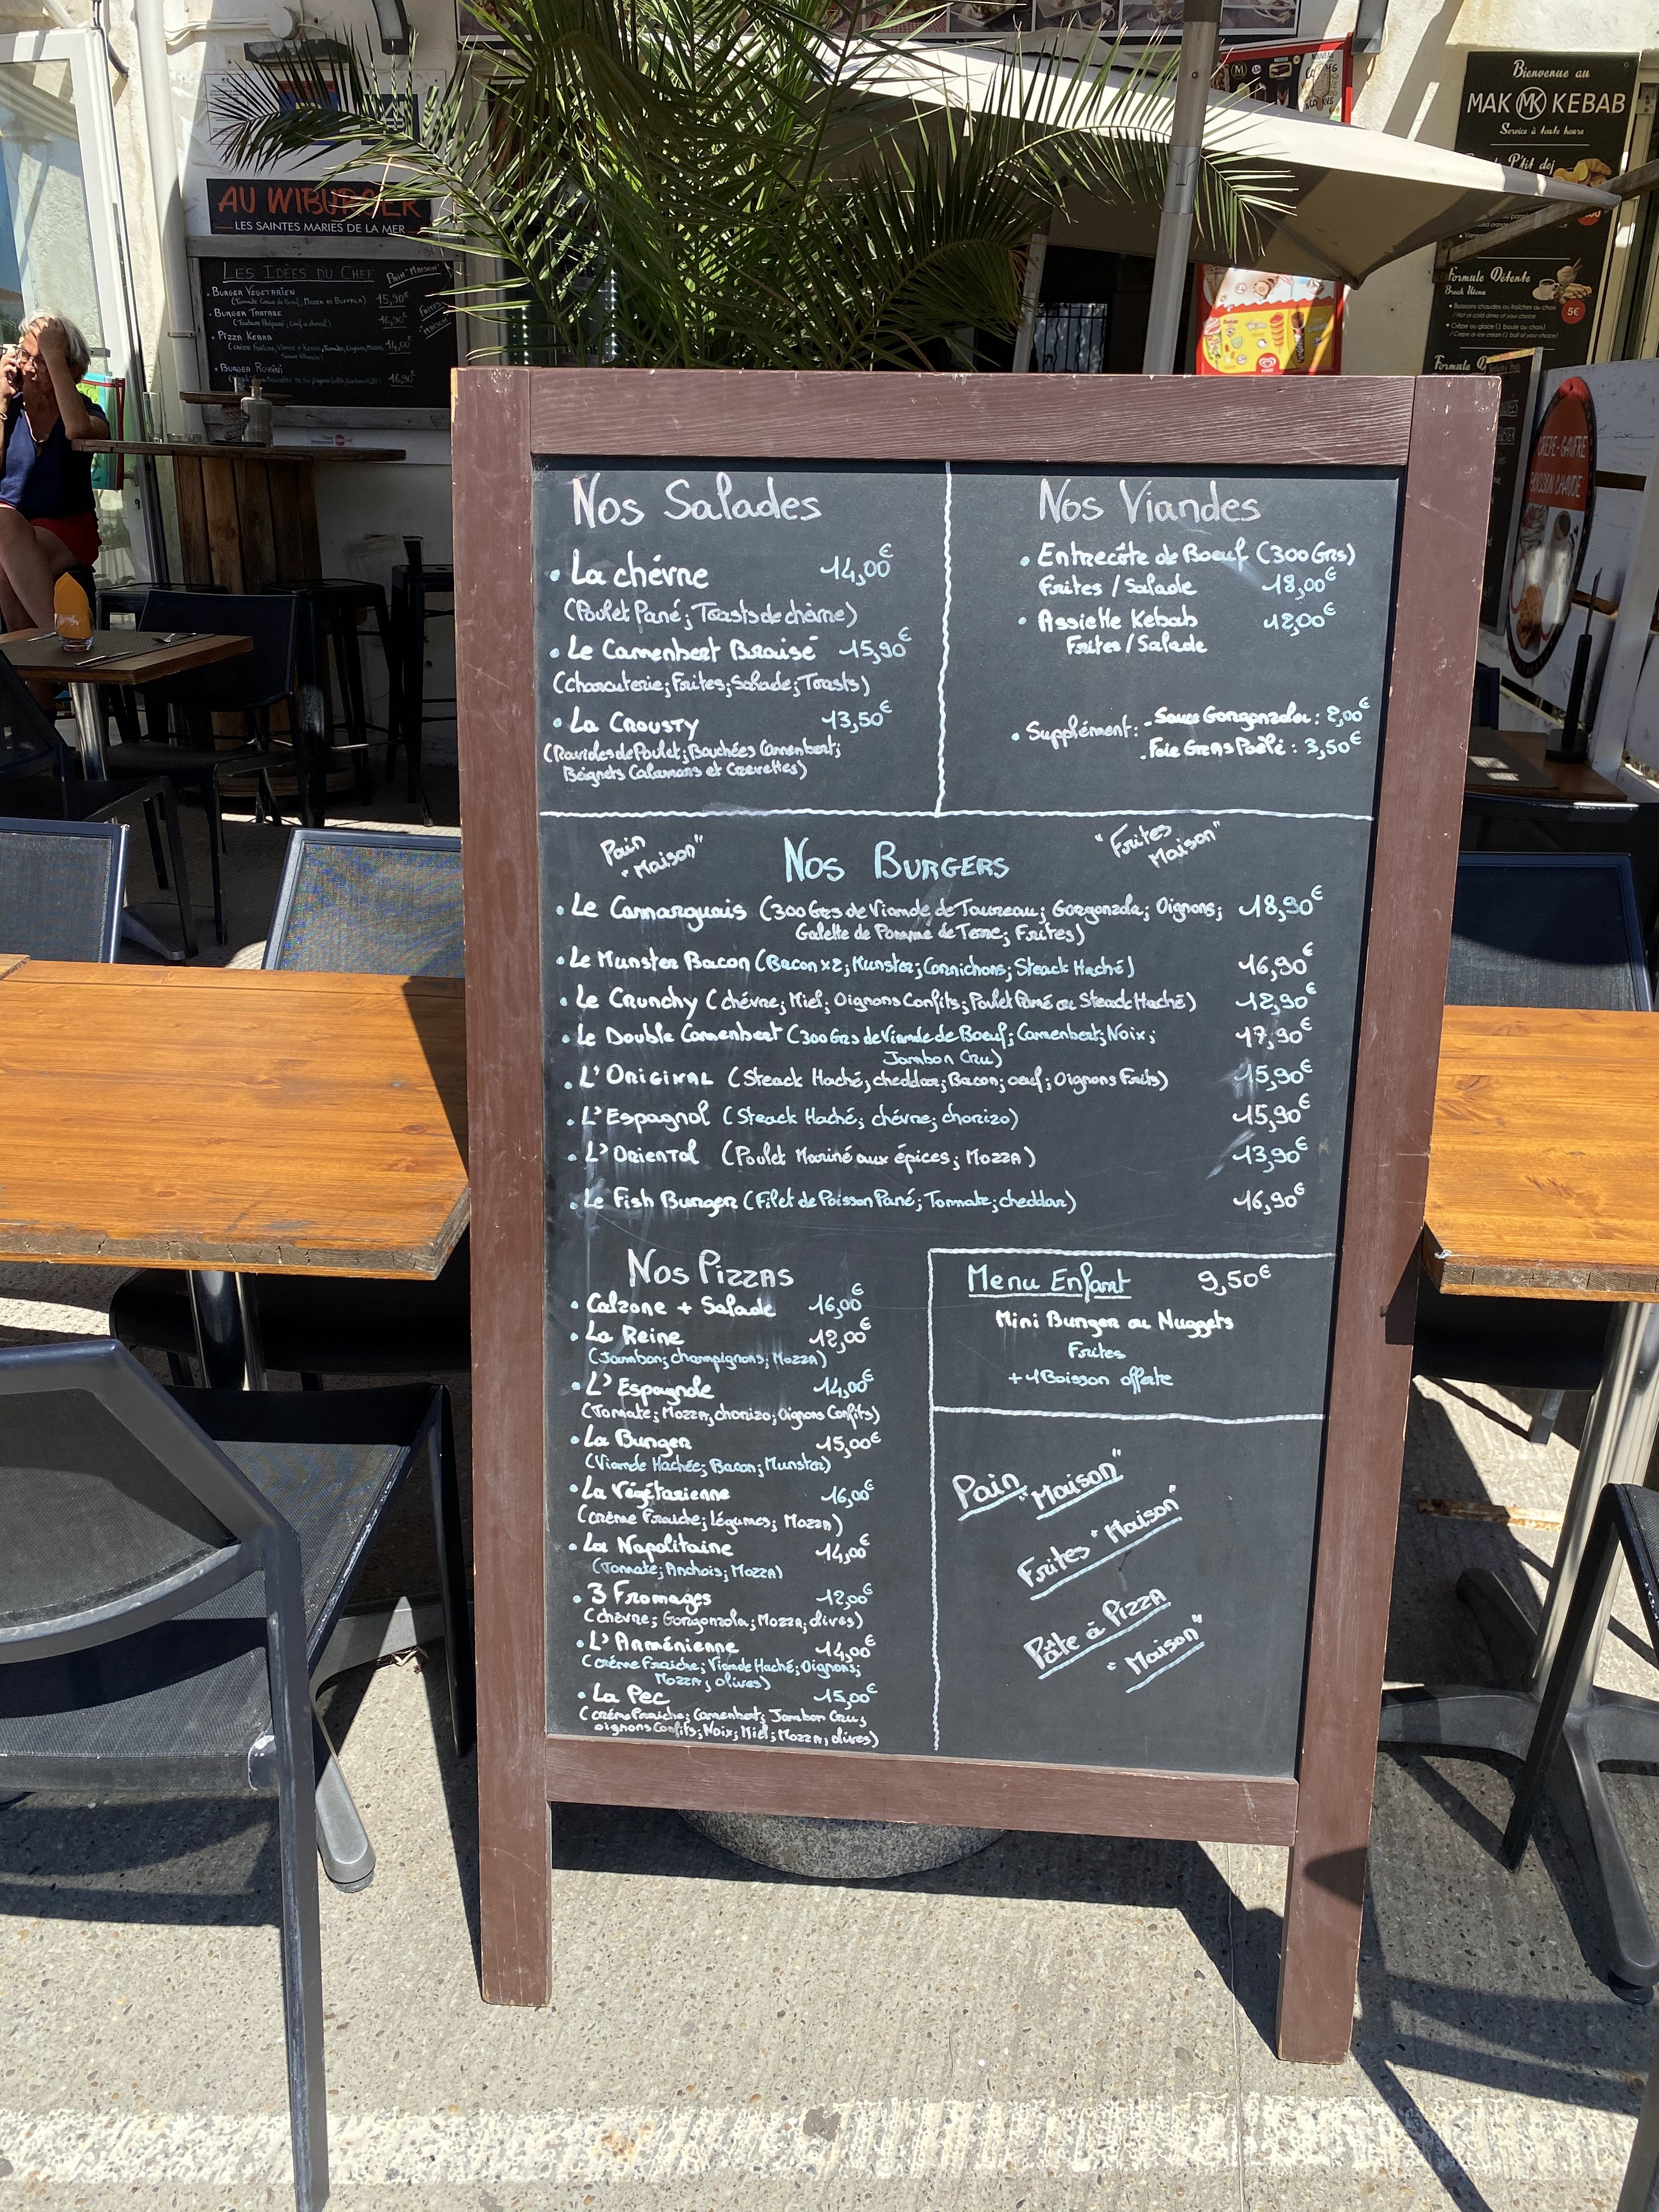 Bienvenue au
MAK MK KEBAB
Service à toute heure
P'tit dej
AU WIBURGER
LES SAINTES MARIES DE LA MER
LES IDÉES DU CHEF
PAIN "MAISON"
FRITES "MAISON"
• BURGER VÉGÉTARIEN 15,90€
• BURGER TARTARE 16,90€
• PIZZA KEBAB 14,00€
• BURGER ROSSINI 16,90€
Formule Détente
Break Menu
• Boissons chaudes ou fraîches au choix
/ Hot or cold drink of your choice
5€
• Crêpe ou glace (1 boule au choix)
/ Crepe or ice cream (1 ball of your choice)
Formule
CRÊPE - GAUFRE
BOISSON CHAUDE
Nos Salades
• La chévre 14,00€
(Poulet Pané; Toasts de chèvre)
• Le Camenbert Braisé 15,90€
(Charcuterie; Frites; Salade; Toasts)
• La CROUSTY 13,50€
(Ravioles de Poulet; Bouchées Camenbert;
Beignets Calamars et Crevettes)
Nos Viandes
• Entrecôte de Boeuf (300 Grs)
Frites / Salade 18,00€
• Assiette Kebab 12,00€
Frites / Salade
• Supplément: - Sauce Gorgonzola : 2,00€
- Foie GRAS Poêlé : 3,50€
Pain
"Maison"
Nos BURGERS
"Frites
Maison"
• Le Camarguais (300 Grs de Viande de Taureau; Gorgonzola; Oignons; 18,90€
Galette de Pomme de Terre; Frites)
• Le Munster Bacon (Bacon x2; Munster; Cornichons; Steack Haché) 16,90€
• Le Crunchy (chévre; Miel; Oignons Confits; Poulet Pané ou Steack Haché) 12,90€
• Le Double Camenbert (300 Grs de Viande de Boeuf; Camenbert; Noix; 17,90€
Jambon Cru)
• L'ORIGINAL (Steack Haché; cheddar; Bacon; oeuf; Oignons Frits) 15,90€
• L'Espagnol (Steack Haché; chévre; chorizo) 15,90€
• L'ORIENTAL (Poulet Mariné aux épices; MOZZA) 13,90€
• Le Fish Burger (Filet de Poisson Pané; Tomate; cheddar) 16,90€
Nos Pizzas
• Calzone + Salade 16,00€
• La Reine 12,00€
(Jambon; champignons; Mozza)
• L'Espagnole 14,00€
(Tomate; Mozza; chorizo; Oignons Confits)
• La Burger 15,00€
(Viande Hachée; Bacon; Munster)
• La Végétarienne 16,00€
(crème Fraiche; légumes; Mozza)
• La Napolitaine 14,00€
(Tomate; Anchois; Mozza)
• 3 Fromages 12,00€
(chèvre; Gorgonzola; Mozza, olives)
• L'Arménienne 14,00€
(crème Fraiche; Viande Haché; Oignons;
Mozza; olives)
• La Pec 15,00€
(crème Fraiche; Camenbert; Jambon Cru;
oignons Confits; Noix; Miel; Mozza, olives)
Menu Enfant 9,50€
Mini Burger ou Nuggets
Frites
+ 1 Boisson offerte
Pain "Maison"
Frites "Maison"
Pâte à Pizza
"Maison"